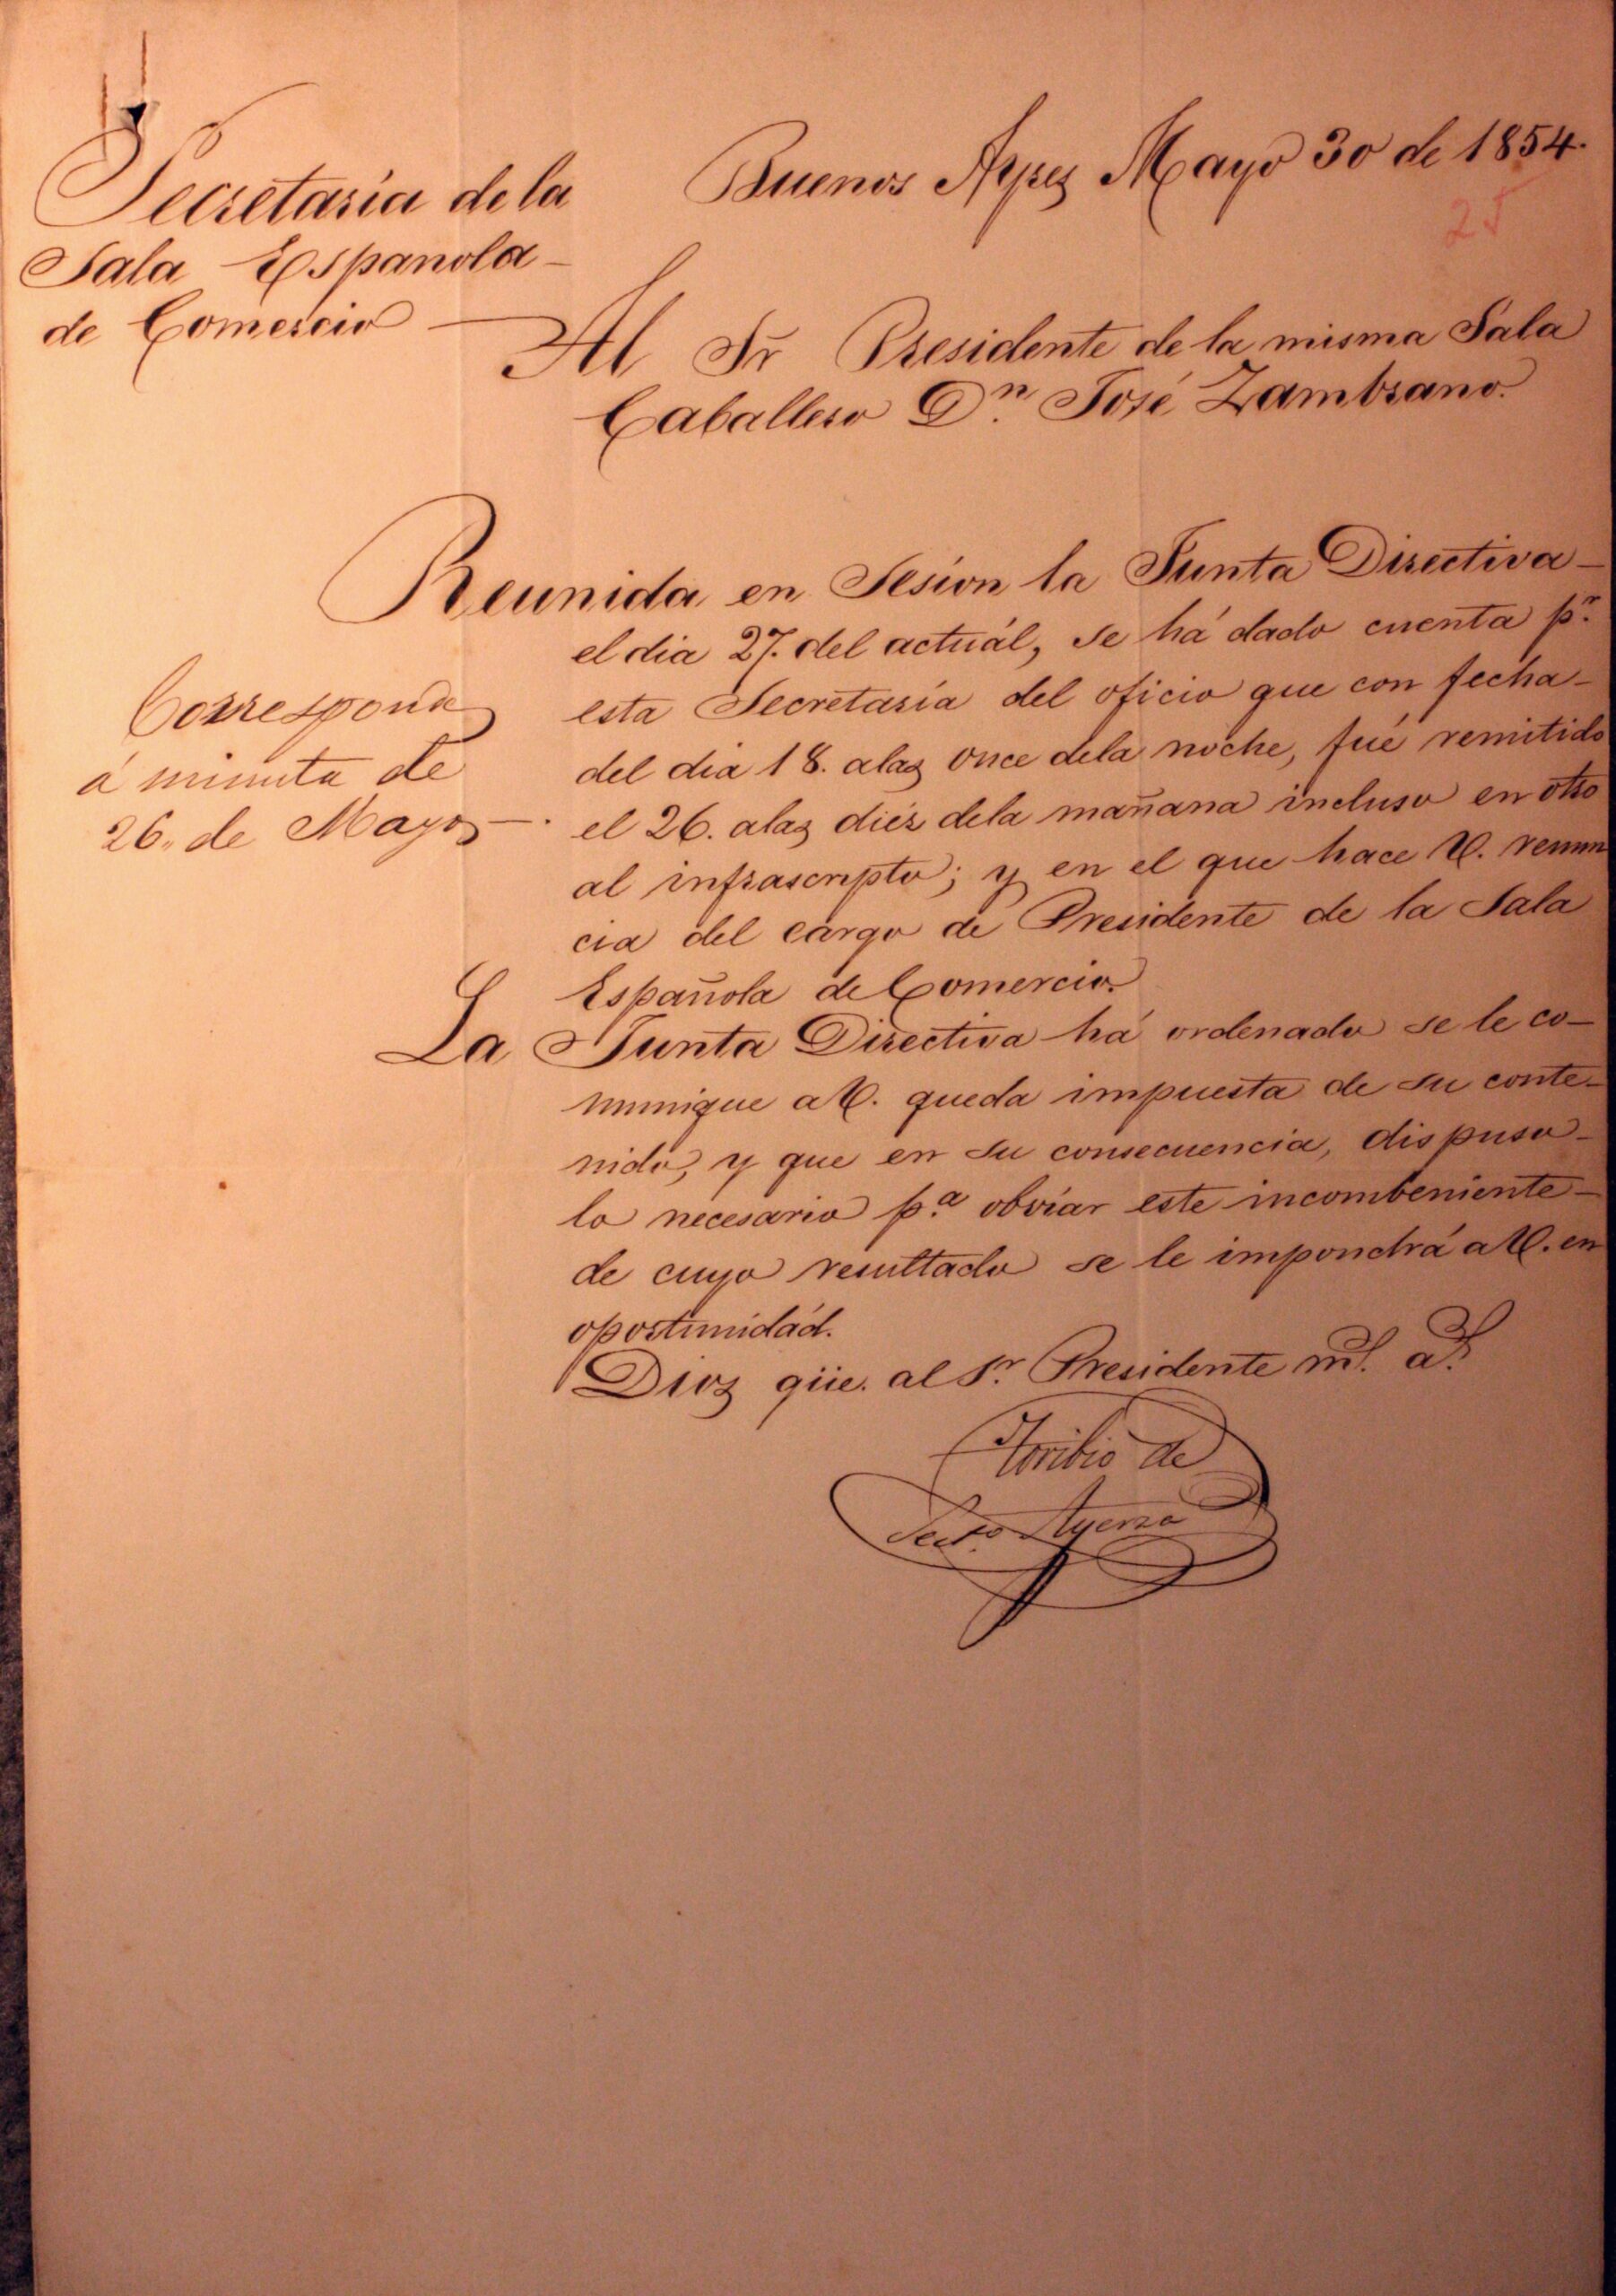 Secretaría de la
Sala Española
de Comercio
Buenos Ayres Mayo 30 de 1854.
25
Al Sr Presidente de la misma Sala
Caballero Dn. José Zambrano.
Reunida en Sesion la Junta Directiva
el dia 27. del actuál, se há dado cuenta pr.
esta Secretaría del oficio que con fecha
del dia 18. alas once dela noche, fué remitido
el 26. alas diéz dela mañana incluso en otro
al infrascripto; y en el que hace V. renun
cia del cargo de Presidente de la Sala
Española de Comercio.
Corresponde
á minuta de
26. de Mayo
La Junta Directiva há ordenado se le co-
munique a V. queda impuesta de su conte-
nido, y que en su consecuencia, dispuso
lo necesario pa. obviar este incombeniente
de cuyo resultado se le impondrá a V. en
oportunidád.
Dios güe. al Sr. Presidente ms. as.
Toribio de
Ayerza
Secto.